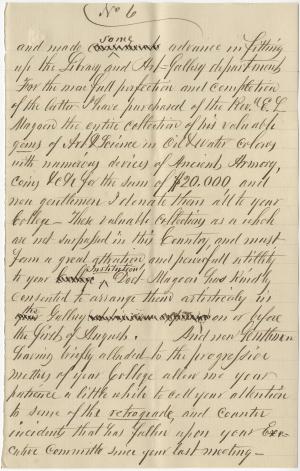 No 6
some
and made advance in fitting
up the Library and Art-Gallery department,
For the more full perfection and completion
of the latter I have purchased of the Rev. E. L
Magoon the entire collection of his valuable
gems of Art & Science in Oil & Water Colors
with numerous devices of Ancient Armory,
coins &c &c for the sum of $20.000 and
now gentlemen I donate them all to your
College - These valuable Collections as a whole
are not surpassed in this Country, and must
form a great attraction and powerfull utility
Institution
to your Doct. Magoon has kindly
consented to arrange them artistically in
the
Gallery on or before
the first of August. And now Gentlemen
having briefly alluded to the progressive
motives of your College allow me your
patience a little while to call your attention
to some of the retrograde, and counter
incidents that has fallen upon your Exe-
cutive Committe since your last meeting -